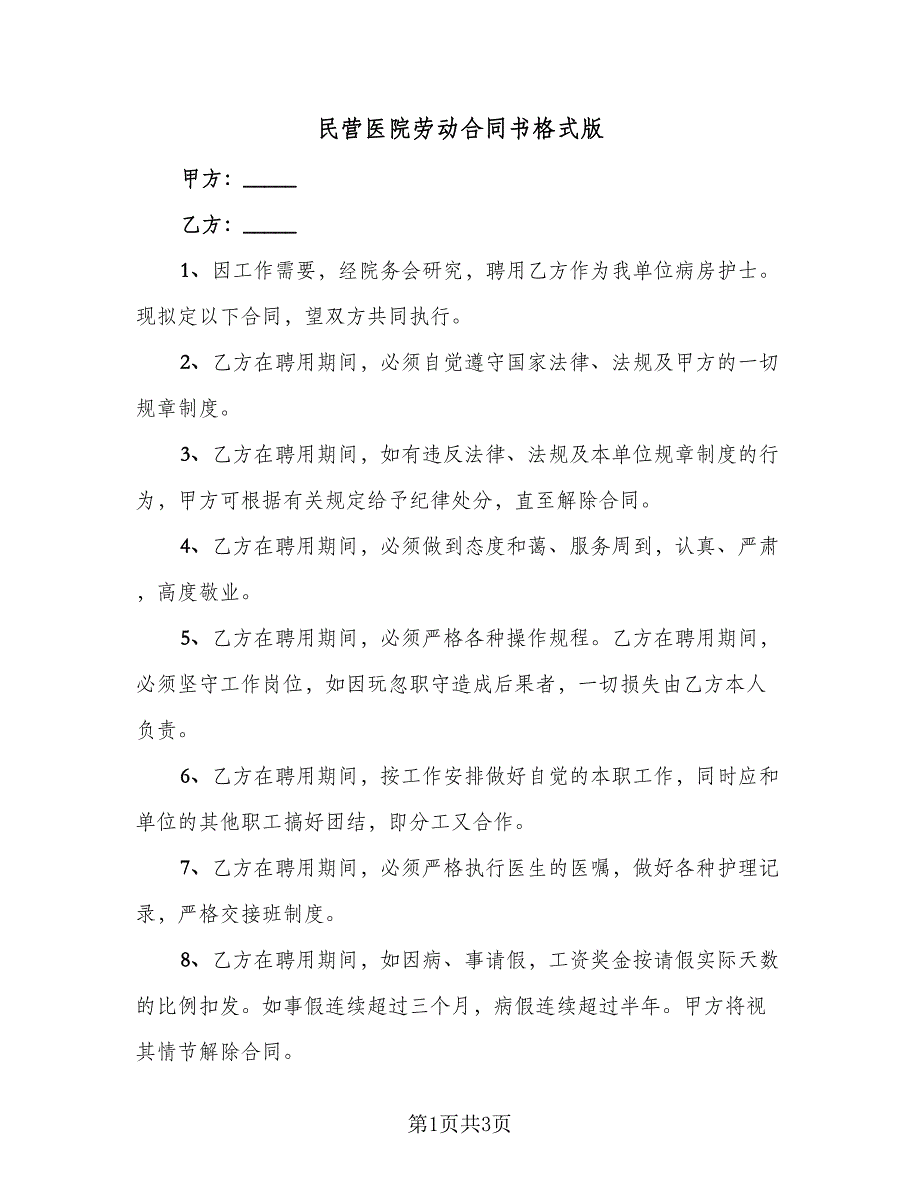 民营医院劳动合同书格式版
甲方：_____
乙方：_____
1、因工作需要，经院务会研究，聘用乙方作为我单位病房护士。
现拟定以下合同，望双方共同执行。
2、乙方在聘用期间，必须自觉遵守国家法律、法规及甲方的一切
规章制度。
3、乙方在聘用期间，如有违反法律、法规及本单位规章制度的行
为，甲方可根据有关规定给予纪律处分，直至解除合同。
4、乙方在聘用期间，必须做到态度和蔼、服务周到，认真、严肃
，高度敬业。
5、乙方在聘用期间，必须严格各种操作规程。乙方在聘用期间，
必须坚守工作岗位，如因玩忽职守造成后果者，一切损失由乙方本人
负责。
6、乙方在聘用期间，按工作安排做好自觉的本职工作，同时应和
单位的其他职工搞好团结，即分工又合作。
7、乙方在聘用期间，必须严格执行医生的医嘱，做好各种护理记
录，严格交接班制度。
8、乙方在聘用期间，如因病、事请假，工资奖金按请假实际天数
的比例扣发。如事假连续超过三个月，病假连续超过半年。甲方将视
其情节解除合同。
第1页共3页